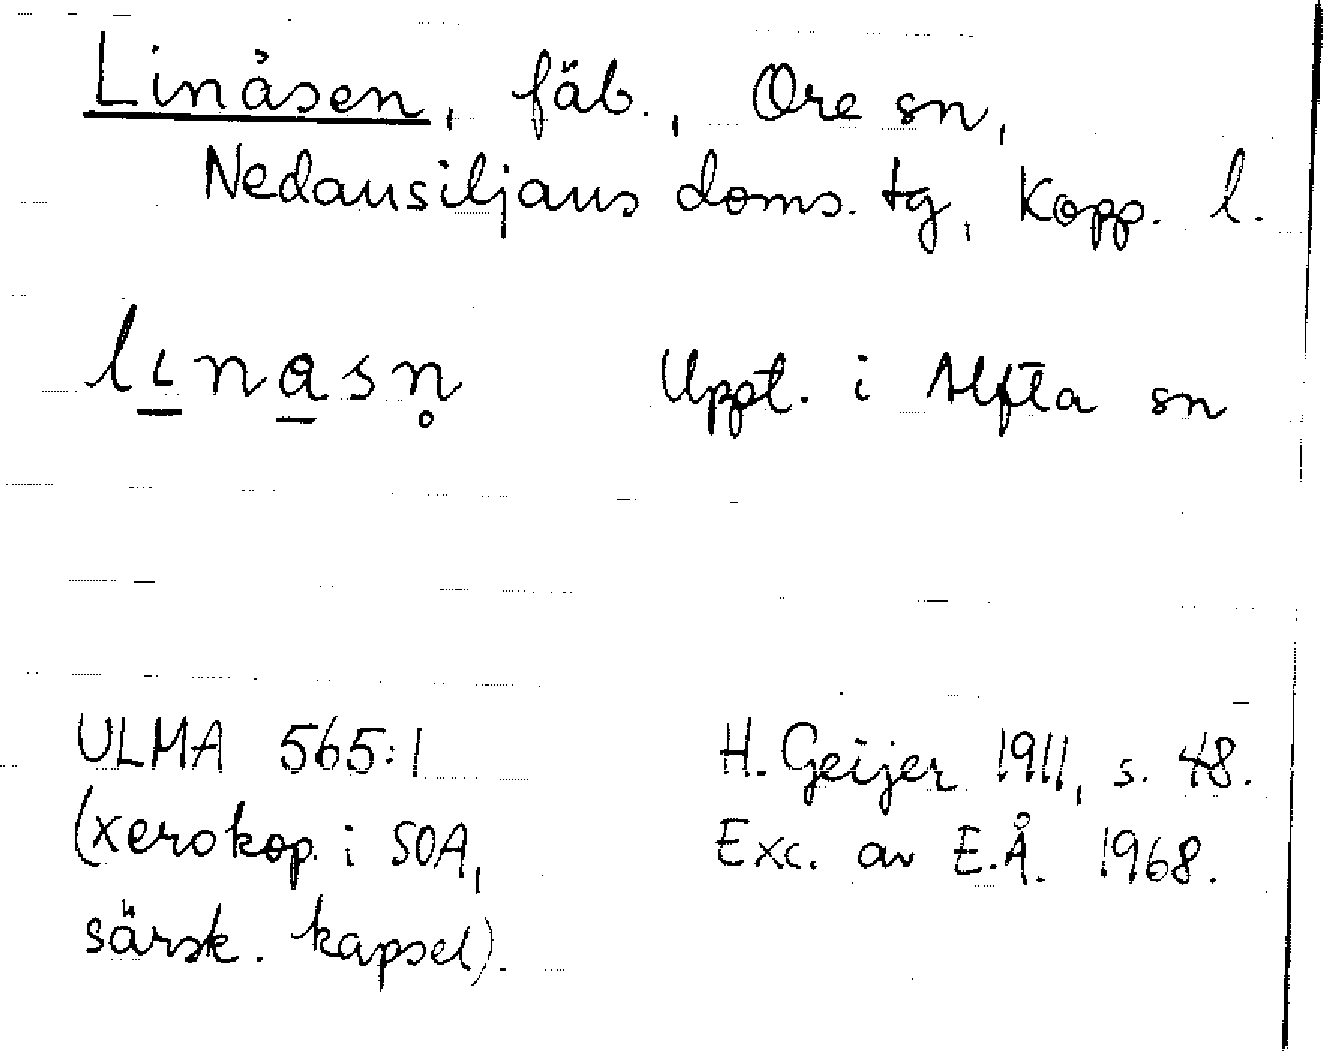 Linåsen, fäb., Ore sn,
Nedansiljans doms. tg, Kopp. l.
lɩ̲na̲sn̥ Uppt. i Alfta sn
ULMA 565:1 H. Geijer 1911, s. 48.
(xerokop. i SOA, Exc. av E.Å. 1968.
särsk. kapsel).